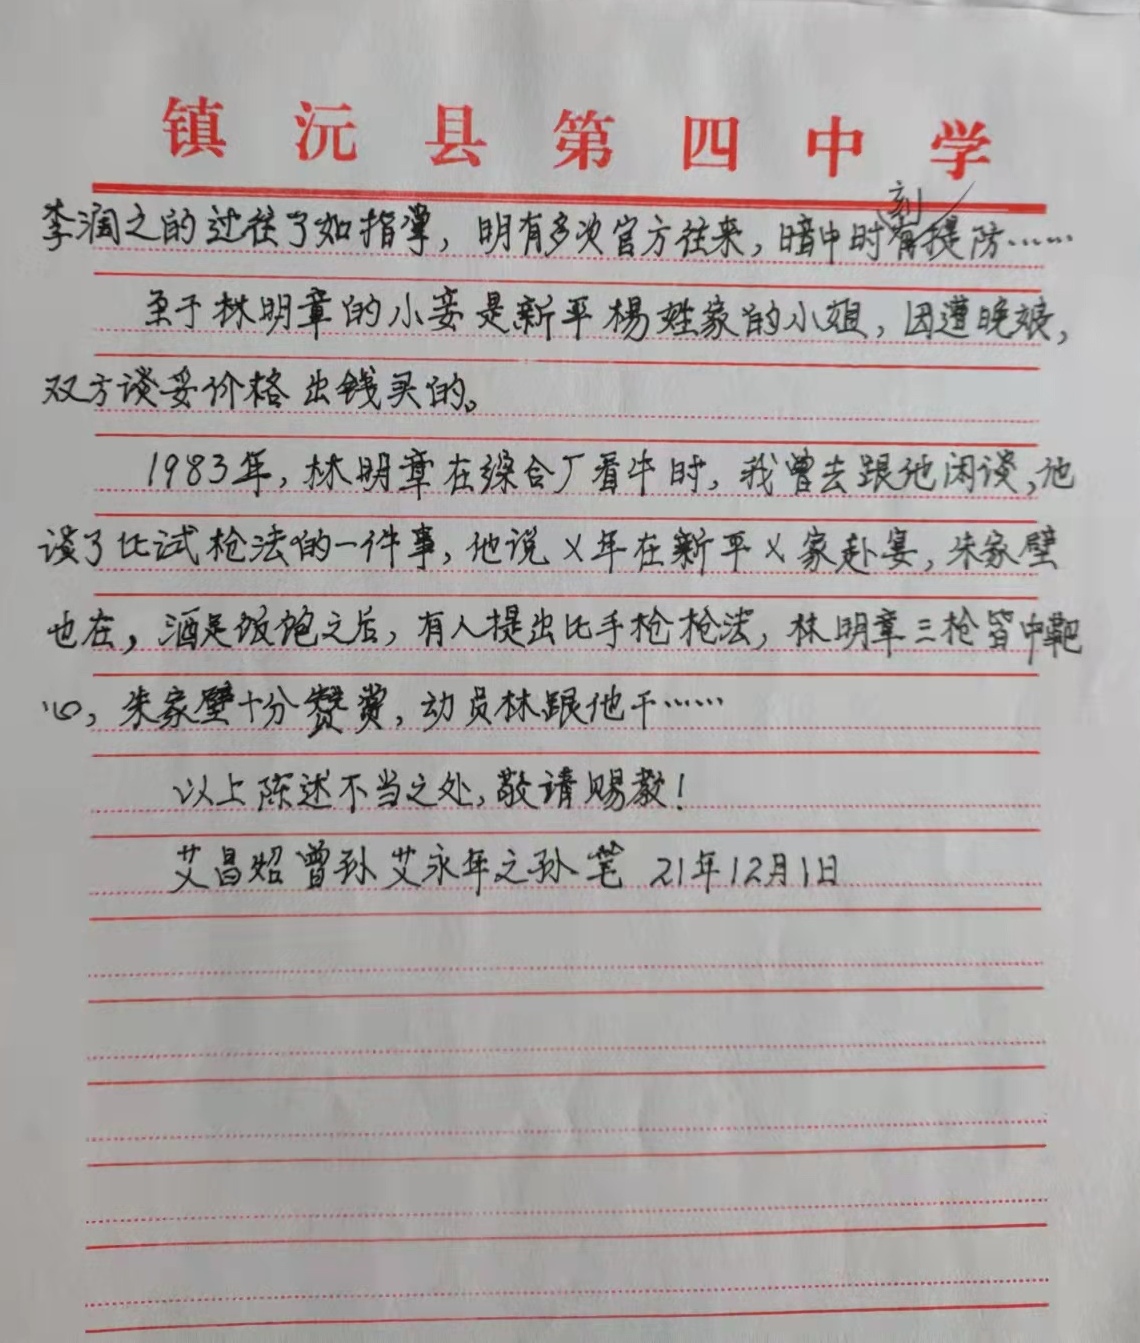 镇沅县第四中学
李润之的过往了如指掌，明有多次官方往来，暗中时刻有提防……
至于林明章的小妾是新平杨姓家的小姐，因遭晚娘，
双方谈妥价格出钱买的。
1983年，林明章在综合厂看牛时，我曾去跟他闲谈，他
谈了比试枪法的一件事，他说乂年在新平乂家赴宴，朱家璧
也在，酒足饭饱之后，有人提出比手枪枪法，林明章三枪皆中靶
心，朱家璧十分赞赏，动员林跟他干……
以上陈述不当之处，敬请赐教！
艾昌炤曾孙艾永年之孙笔 21年12月1日